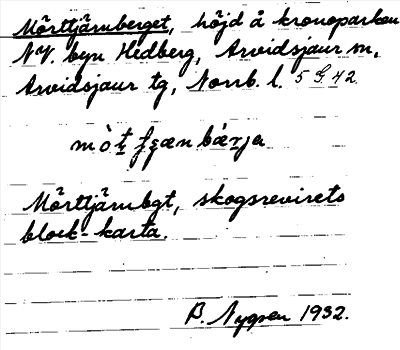 Mörttjärnberget, höjd å kronoparken
NV. byn Hedberg, Arvidsjaur sn,
Arvidsjaur tg, Norrb. l. 5 G. 42.
Mörttjärnbgt, skogsrevirets
block-karta.
B. Nygren 1932.